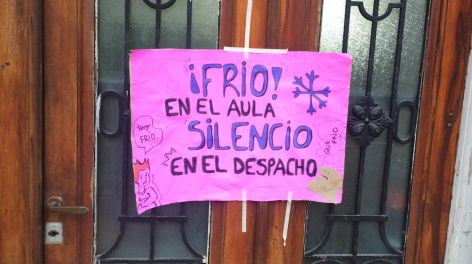 ¡FRIO!
EN EL AULA
SILENCIO
EN EL DESPACHO
Tengo
FRIO
QUE
FRIO